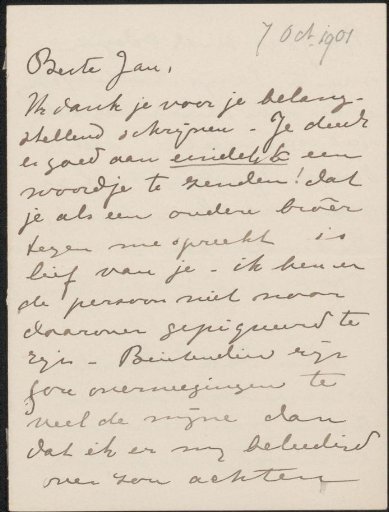 7 Oct. 1901
Beste Jan,
Ik dank je voor je belang-
stellend schrijven - Je deedt
er goed aan eindelijk een
woordje te zenden! dat
je als een oudere broêr
tegen me spreekt is
lief van je - ik ben er
de persoon niet naar
daarover gepiqueerd te
zijn - Buitendien zijn
jou overwegingen te
veel de mijne dan
dat ik er mij beleedigd
over zou achten